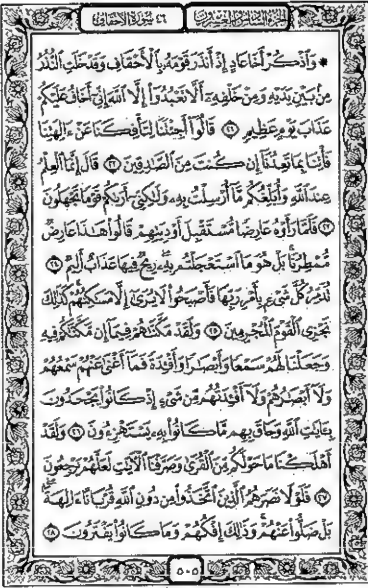 الجزء السادس والعشرون
٤٦ سورة الأحقاف
۞ وَٱذْكُرْ أَخَا عَادٍ إِذْ أَنذَرَ قَوْمَهُۥ بِٱلْأَحْقَافِ وَقَدْ خَلَتِ ٱلنُّذُرُ
مِنۢ بَيْنِ يَدَيْهِ وَمِنْ خَلْفِهِۦٓ أَلَّا تَعْبُدُوٓا۟ إِلَّا ٱللَّهَ إِنِّىٓ أَخَافُ عَلَيْكُمْ
عَذَابَ يَوْمٍ عَظِيمٍ ٢١ قَالُوٓا۟ أَجِئْتَنَا لِتَأْفِكَنَا عَنْ ءَالِهَتِنَا
فَأْتِنَا بِمَا تَعِدُنَآ إِن كُنتَ مِنَ ٱلصَّٰدِقِينَ ٢٢ قَالَ إِنَّمَا ٱلْعِلْمُ
عِندَ ٱللَّهِ وَأُبَلِّغُكُم مَّآ أُرْسِلْتُ بِهِۦ وَلَٰكِنِّىٓ أَرَىٰكُمْ قَوْمًا تَجْهَلُونَ
٢٣ فَلَمَّا رَأَوْهُ عَارِضًا مُّسْتَقْبِلَ أَوْدِيَتِهِمْ قَالُوا۟ هَٰذَا عَارِضٌ
مُّمْطِرُنَا ۚ بَلْ هُوَ مَا ٱسْتَعْجَلْتُم بِهِۦ ۖ رِيحٌ فِيهَا عَذَابٌ أَلِيمٌ ٢٤
تُدَمِّرُ كُلَّ شَىْءٍۭ بِأَمْرِ رَبِّهَا فَأَصْبَحُوا۟ لَا يُرَىٰٓ إِلَّا مَسَٰكِنُهُمْ ۚ كَذَٰلِكَ
نَجْزِى ٱلْقَوْمَ ٱلْمُجْرِمِينَ ٢٥ وَلَقَدْ مَكَّنَّٰهُمْ فِيمَآ إِن مَّكَّنَّٰكُمْ فِيهِ
وَجَعَلْنَا لَهُمْ سَمْعًا وَأَبْصَٰرًا وَأَفْـِٔدَةً فَمَآ أَغْنَىٰ عَنْهُمْ سَمْعُهُمْ
وَلَآ أَبْصَٰرُهُمْ وَلَآ أَفْـِٔدَتُهُم مِّن شَىْءٍ إِذْ كَانُوا۟ يَجْحَدُونَ
بِـَٔايَٰتِ ٱللَّهِ وَحَاقَ بِهِم مَّا كَانُوا۟ بِهِۦ يَسْتَهْزِءُونَ ٢٦ وَلَقَدْ
أَهْلَكْنَا مَا حَوْلَكُم مِّنَ ٱلْقُرَىٰ وَصَرَّفْنَا ٱلْـَٔايَٰتِ لَعَلَّهُمْ يَرْجِعُونَ
٢٧ فَلَوْلَا نَصَرَهُمُ ٱلَّذِينَ ٱتَّخَذُوا۟ مِن دُونِ ٱللَّهِ قُرْبَانًا ءَالِهَةًۢ ۖ
بَلْ ضَلُّوا۟ عَنْهُمْ ۚ وَذَٰلِكَ إِفْكُهُمْ وَمَا كَانُوا۟ يَفْتَرُونَ ٢٨
٥٠٥